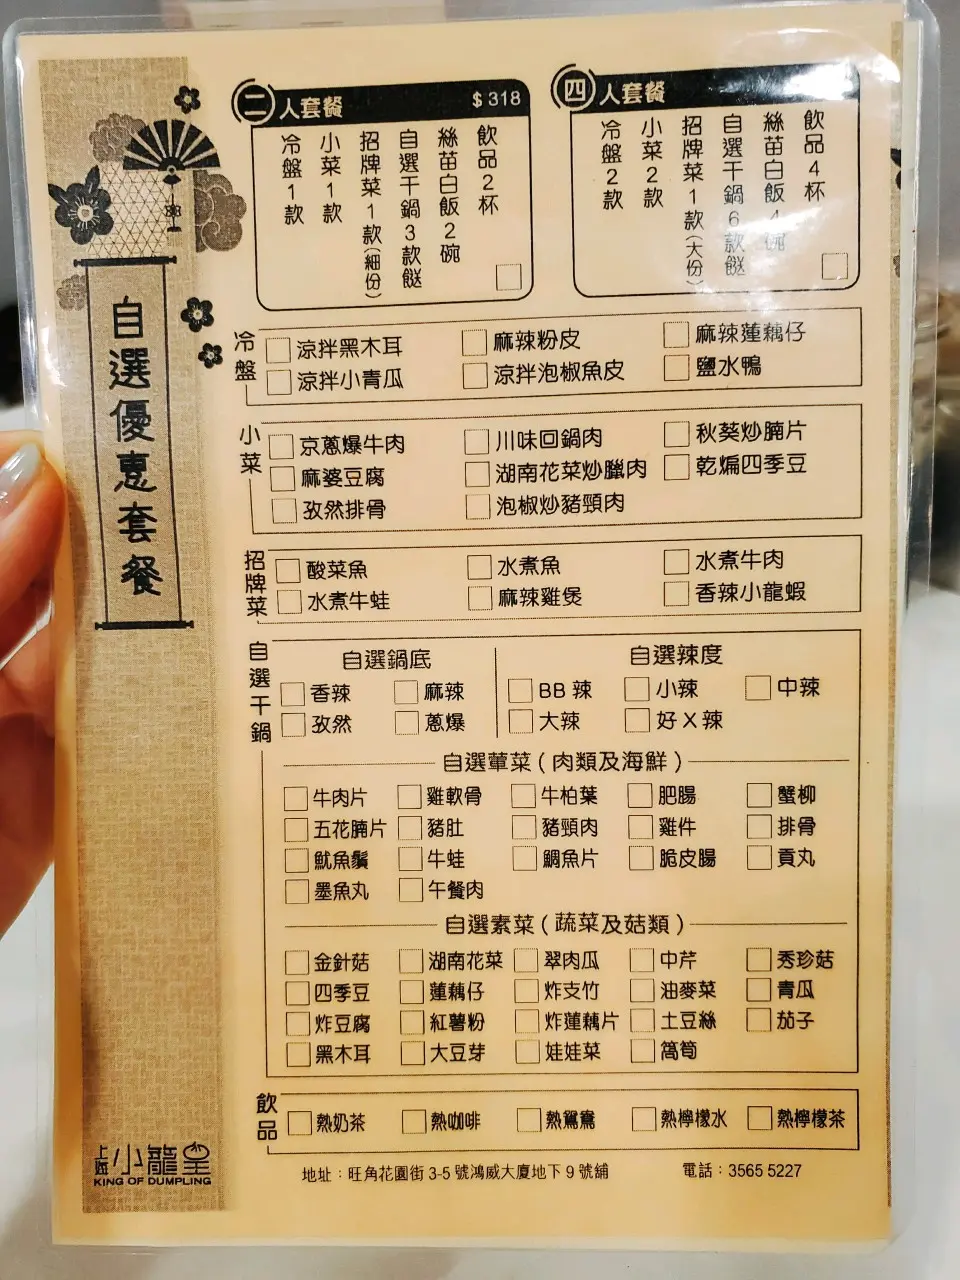 自選優惠套餐
二人套餐 $318
冷盤1款
小菜1款
招牌菜1款(細份)
自選干鍋3款餸
絲苗白飯2碗
飲品2杯
四人套餐
冷盤2款
小菜2款
招牌菜1款(大份)
自選干鍋6款餸
絲苗白飯4碗
飲品4杯
冷盤
涼拌黑木耳 麻辣粉皮 麻辣蓮藕仔
涼拌小青瓜 涼拌泡椒魚皮 鹽水鴨
小菜
京蔥爆牛肉 川味回鍋肉 秋葵炒腩片
麻婆豆腐 湖南花菜炒臘肉 乾煸四季豆
孜然排骨 泡椒炒豬頸肉
招牌菜
酸菜魚 水煮魚 水煮牛肉
水煮牛蛙 麻辣雞煲 香辣小龍蝦
自選干鍋
自選鍋底
香辣 麻辣
孜然 蔥爆
自選辣度
BB辣 小辣 中辣
大辣 好X辣
自選葷菜(肉類及海鮮)
牛肉片 雞軟骨 牛柏葉 肥腸 蟹柳
五花腩片 豬肚 豬頸肉 雞件 排骨
魷魚鬚 牛蛙 鯛魚片 脆皮腸 貢丸
墨魚丸 午餐肉
自選素菜(蔬菜及菇類)
金針菇 湖南花菜 翠肉瓜 中芹 秀珍菇
四季豆 蓮藕仔 炸支竹 油麥菜 青瓜
炸豆腐 紅薯粉 炸蓮藕片 土豆絲 茄子
黑木耳 大豆芽 娃娃菜 萵筍
飲品
熱奶茶 熱咖啡 熱鴛鴦 熱檸檬水 熱檸檬茶
上匯小籠皇
KING OF DUMPLING
地址：旺角花園街3-5號鴻威大廈地下9號舖 電話：3565 5227